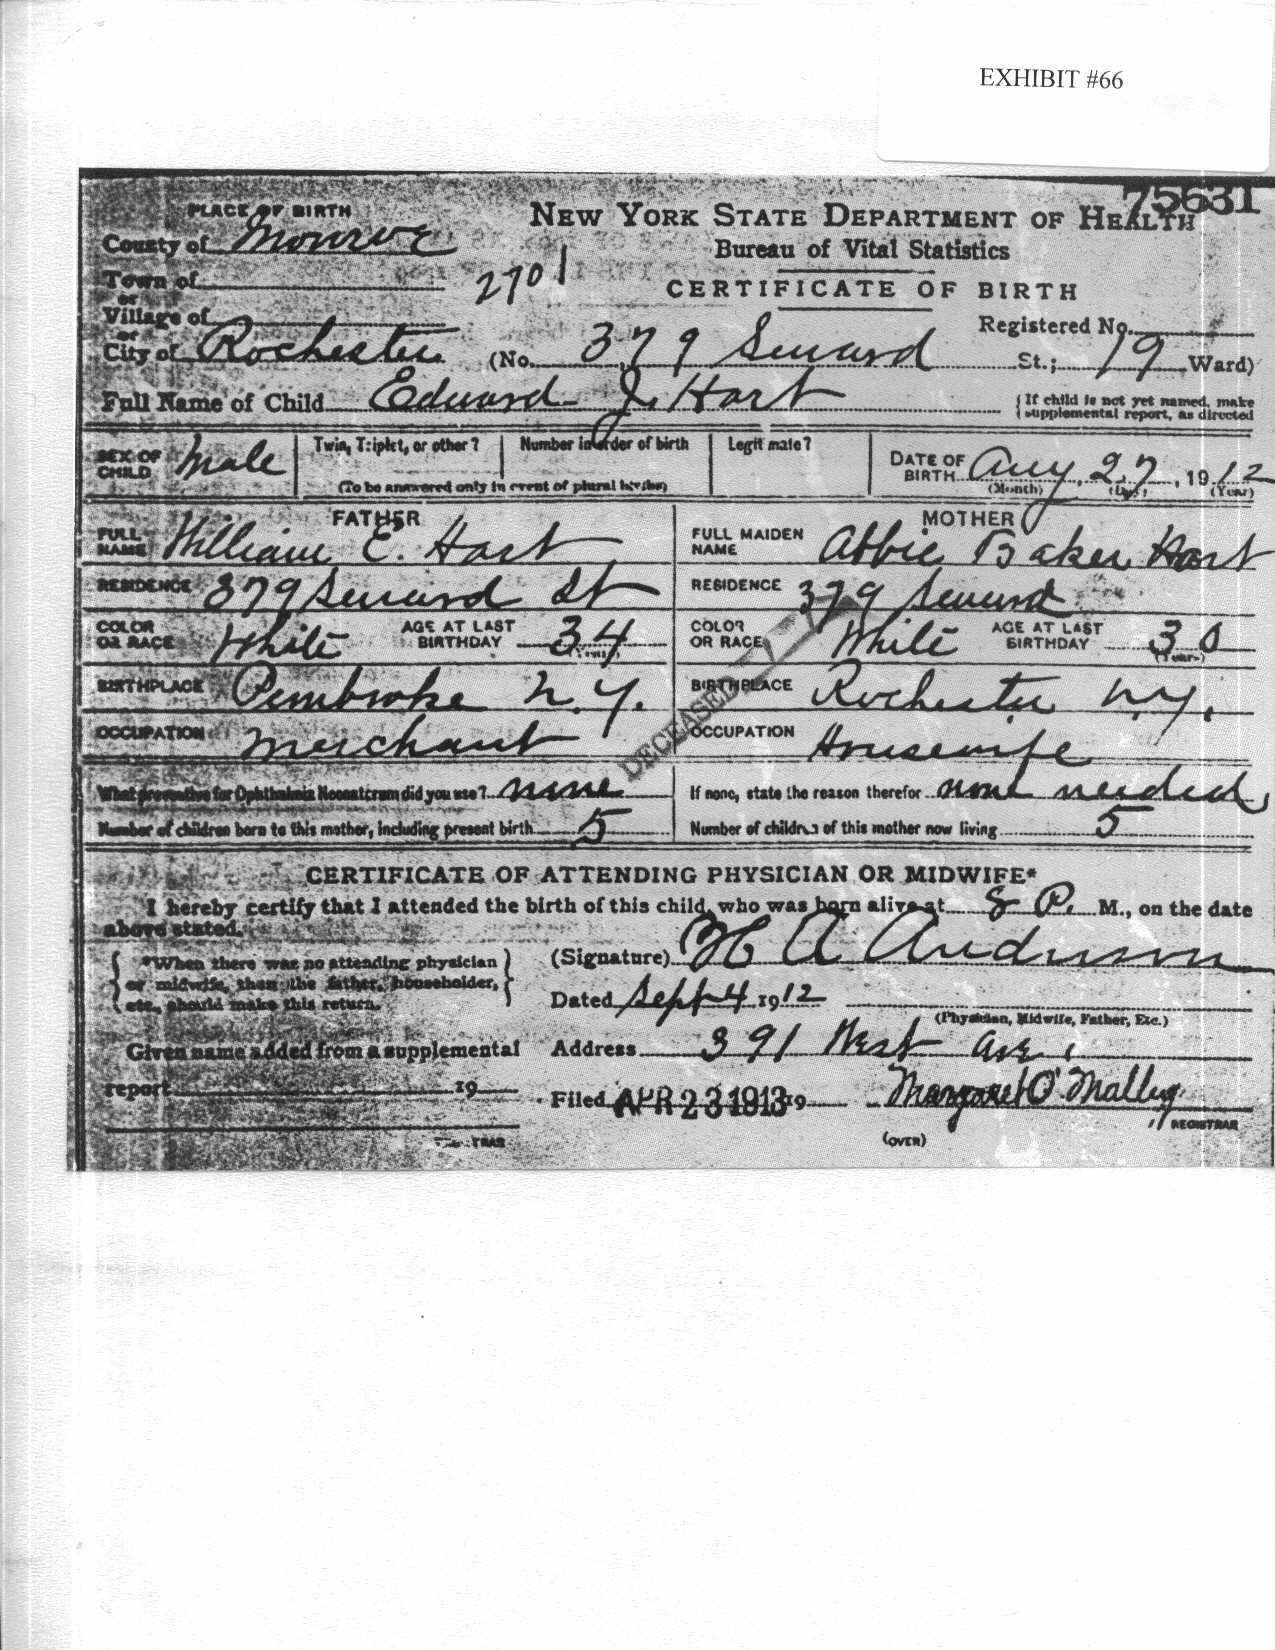 EXHIBIT #66
75631
PLACE OF BIRTH
NEW YORK STATE DEPARTMENT OF HEALTH
County of Monroe
Bureau of Vital Statistics
Town of
2701
CERTIFICATE OF BIRTH
or
Village of
Registered No.
or
City of Rochester (No. 379 Seward St.; 19 Ward)
Full Name of Child Edward J. Hart { If child is not yet named, make supplemental report, as directed
SEX OF CHILD Male
Twin, Triplet, or other?
Number in order of birth
(To be answered only in event of plural births)
Legitimate?
DATE OF BIRTH Aug 27, 1912
(Month) (Day) (Year)
FATHER
MOTHER
FULL NAME William E. Hart
FULL MAIDEN NAME Abbie Baker Hart
RESIDENCE 379 Seward St
RESIDENCE 379 Seward
COLOR OR RACE White AGE AT LAST BIRTHDAY 34 (Years)
COLOR OR RACE White AGE AT LAST BIRTHDAY 30 (Years)
BIRTHPLACE Pembroke N.Y.
BIRTHPLACE Rochester N.Y.
DECEASED
OCCUPATION Merchant
OCCUPATION Housewife
What preventive for Ophthalmia Neonatorum did you use? none
If none, state the reason therefor none needed
Number of children born to this mother, including present birth 5
Number of children of this mother now living 5
CERTIFICATE OF ATTENDING PHYSICIAN OR MIDWIFE*
I hereby certify that I attended the birth of this child, who was born alive at 8 P. M., on the date
above stated.
{ *When there was no attending physician or midwife, then the father, householder, etc., should make this return. }
(Signature)
Dated Sept 4 1912
(Physician, Midwife, Father, Etc.)
Given name added from a supplemental
Address 391 West Ave.
report 19
Filed APR 23 1913 19 Margaret O'Malley
REGISTRAR
(OVER)